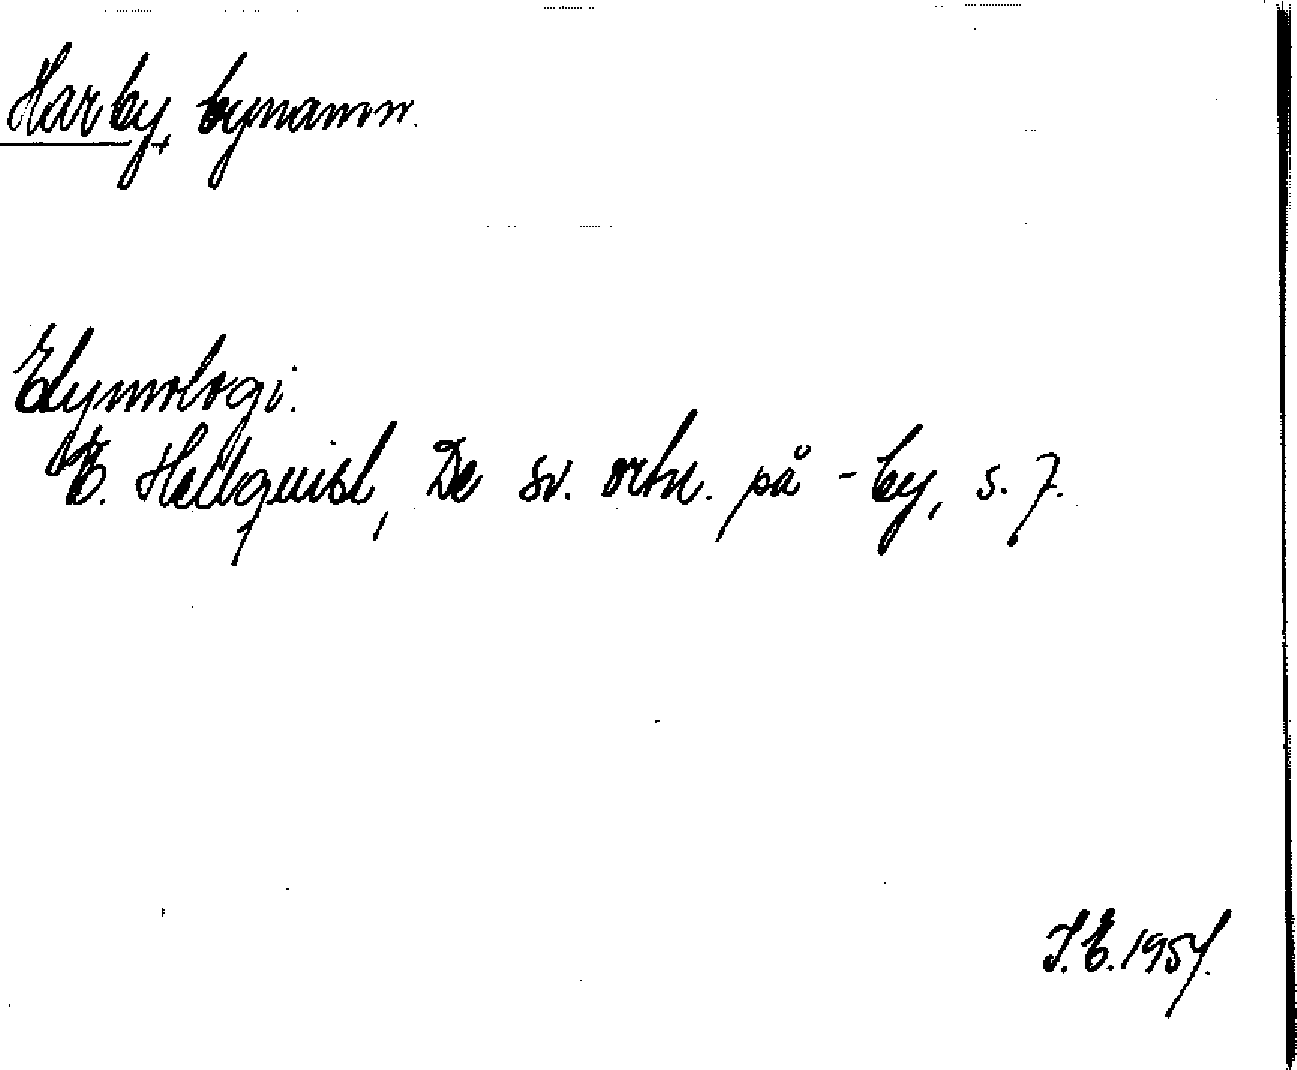 Harby, bynamn.
Etymologi.
E. Hellquist, De sv. ortn. på -by, s. 7.
I.E. 1954.